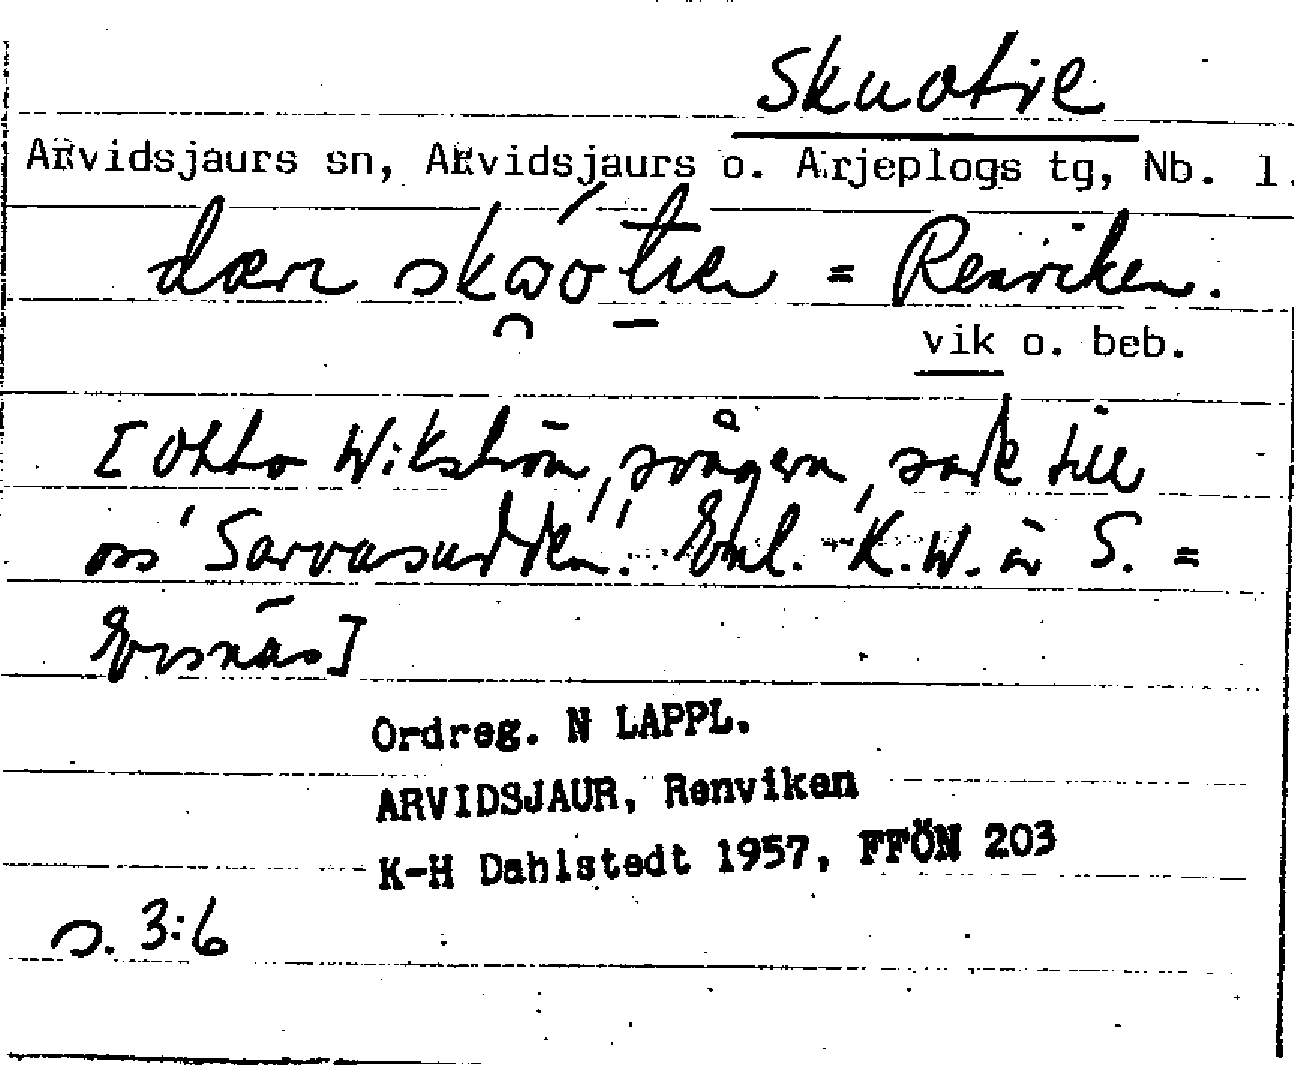 Skuotre
Arvidsjaurs sn, Arvidsjaurs o. Arjeplogs tg, Nb. l.
= Renviken.
vik o. beb.
[Otto Wikström, sade till
oss 'Sarvasudden'. Enl. K.W. är S. =
Ersnäs]
Ordreg. N LAPPL.
ARVIDSJAUR, Renviken
K-H Dahlstedt 1957, FFÖN 203
s. 3:6